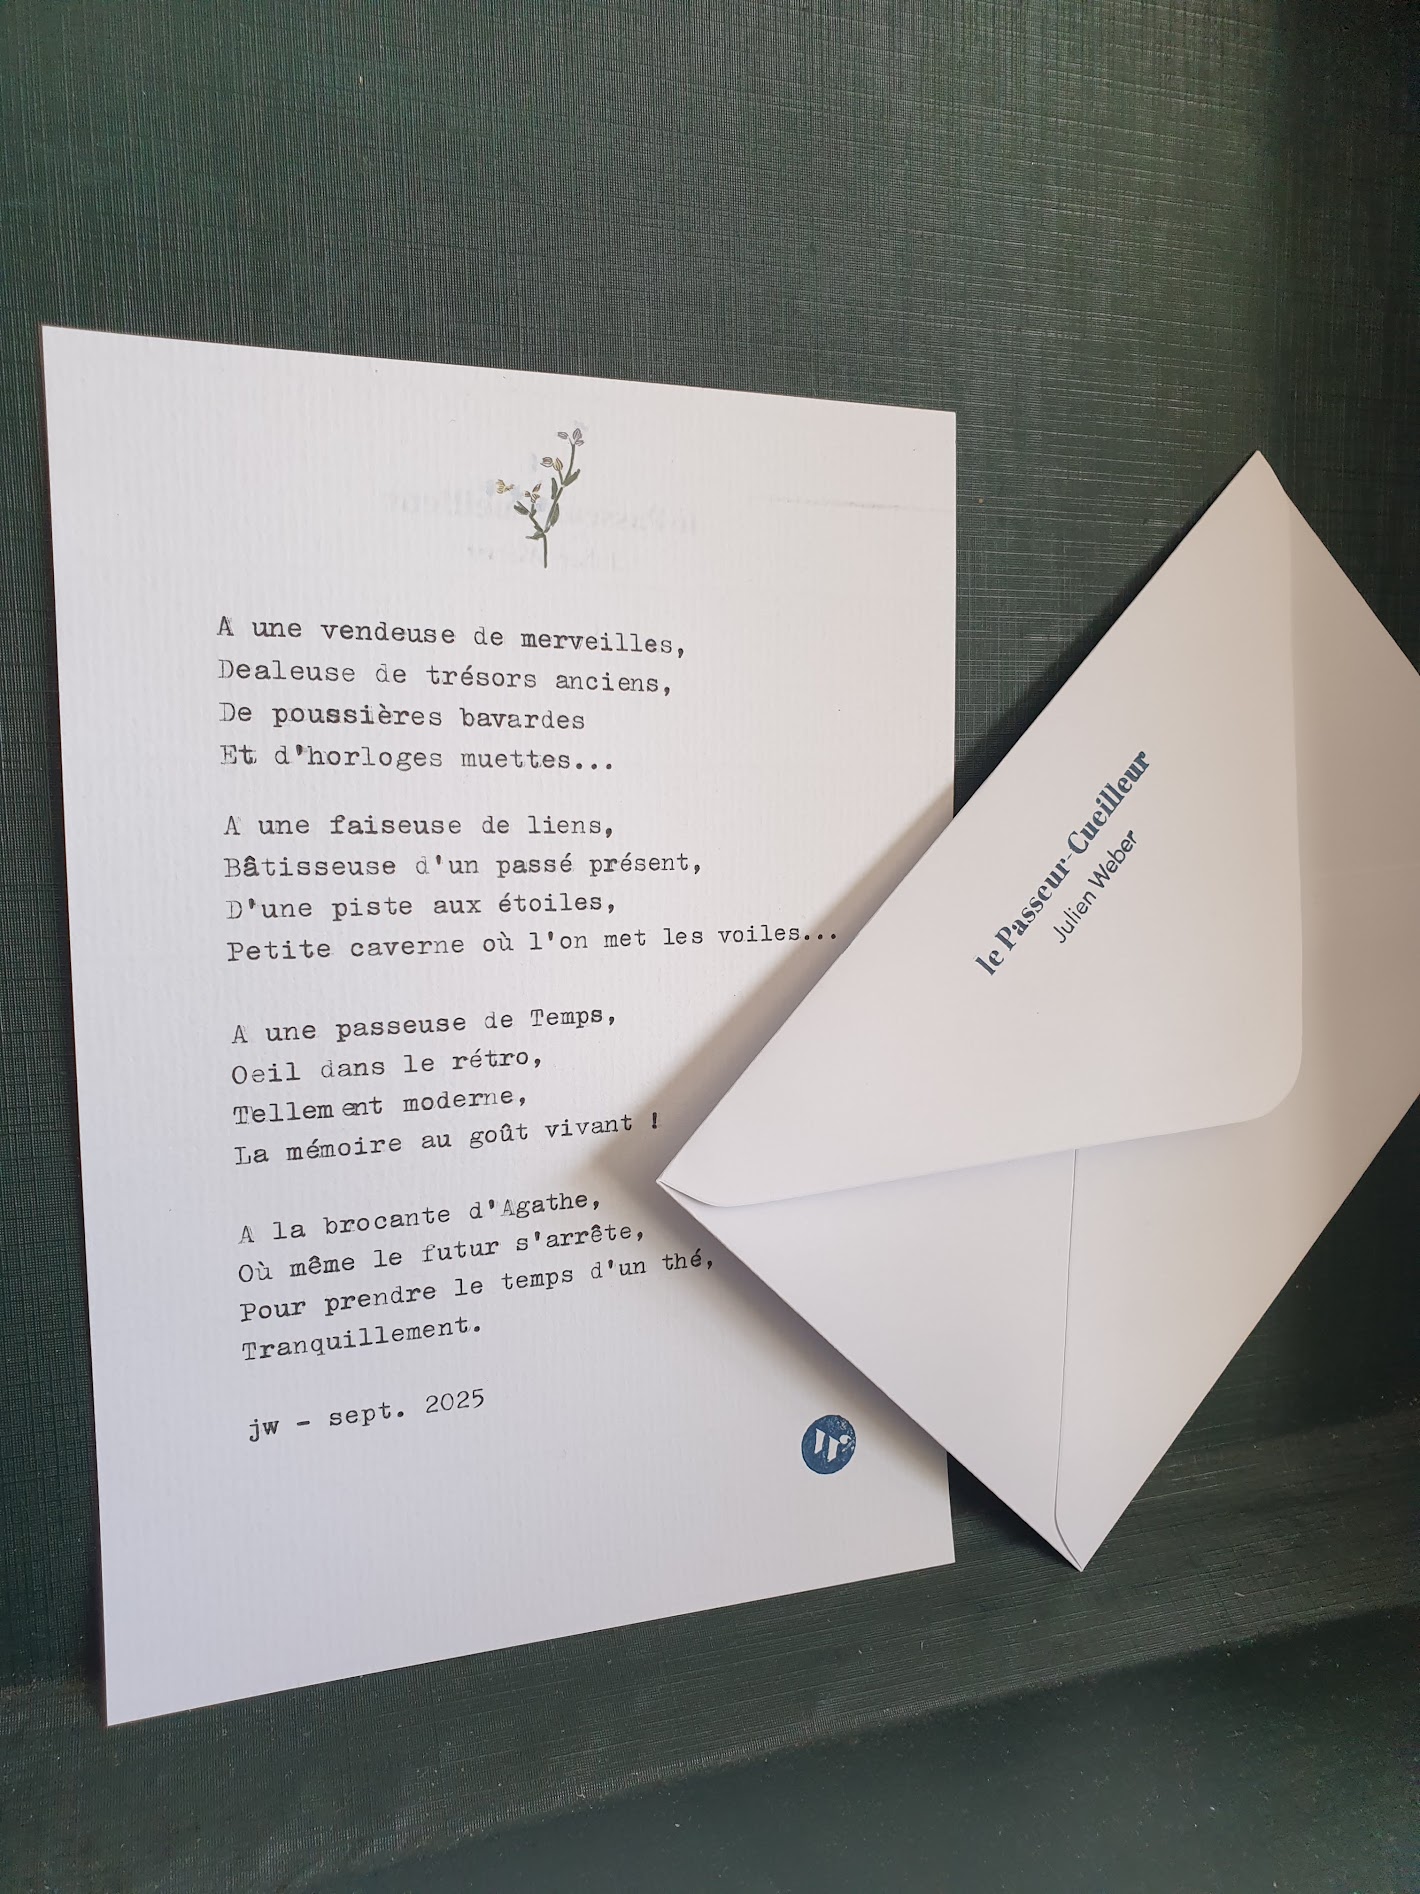 A une vendeuse de merveilles,
Dealeuse de trésors anciens,
De poussières bavardes
Et d'horloges muettes...
A une faiseuse de liens,
Bâtisseuse d'un passé présent,
D'une piste aux étoiles,
Petite caverne où l'on met les voiles...
A une passeuse de Temps,
Oeil dans le rétro,
Tellement moderne,
La mémoire au goût vivant !
A la brocante d'Agathe,
Où même le futur s'arrête,
Pour prendre le temps d'un thé,
Tranquillement.
jw - sept. 2025
le Passeur-Cueilleur
Julien Weber